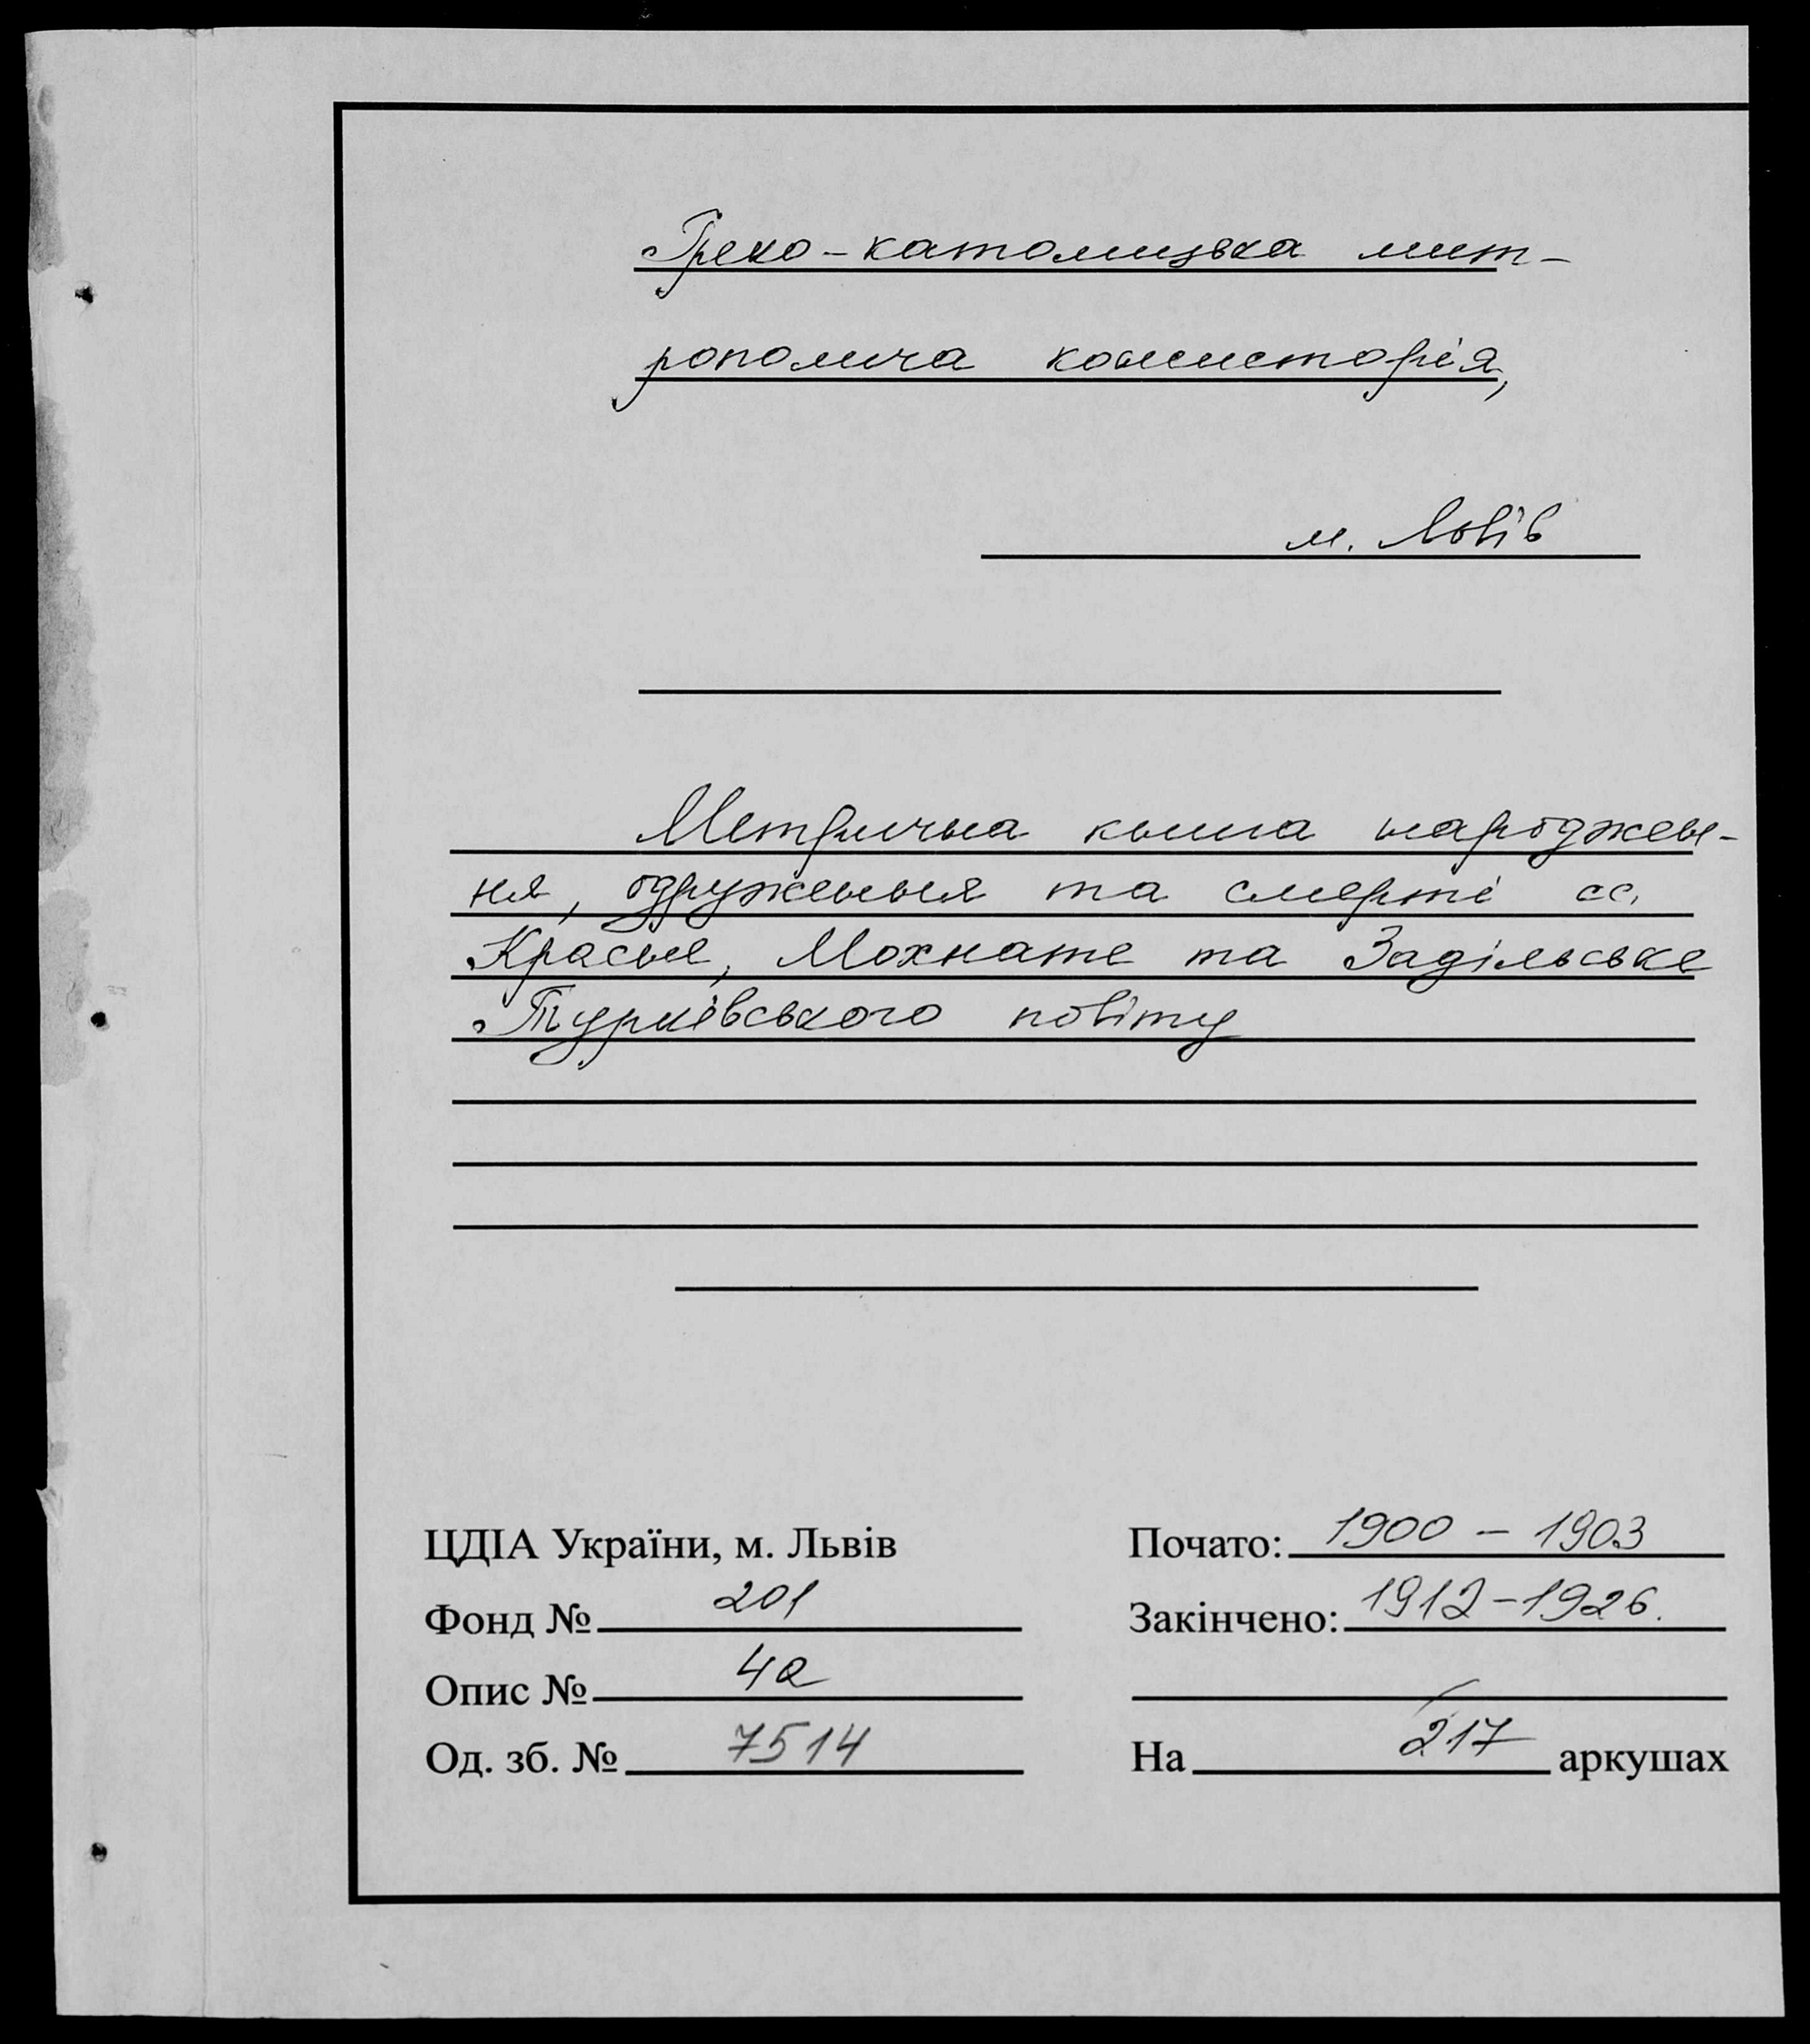 Греко-католицька мит-
рополича консисторія,
м. Львів
Метрична книга народжен-
ня, одруження та смерті сс.
Красне, Мохнате та Задільське
Турківського повіту
ЦДІА України, м. Львів
Фонд № 201
Опис № 4а
Од. зб. № 7514
Почато: 1900 - 1903
Закінчено: 1912-1926.
На 217 аркушах